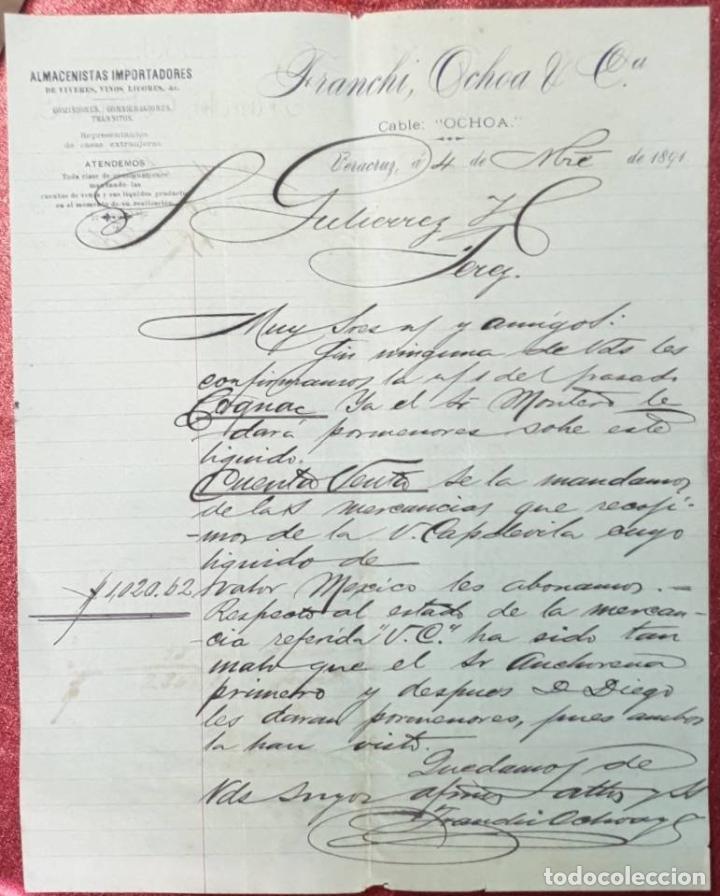 ALMACENISTAS IMPORTADORES
DE VIVERES, VINOS, LICORES, &c.
COMISIONES, CONSIGNACIONES,
TRANSITOS.
Representantes
de casas extranjeras
ATENDEMOS
Toda clase de consignaciones
mandando las
cuentas de venta y sus liquidos productos
en el momento de su realizacion
Franchi, Ochoa & Cª
Cable: "OCHOA."
Veracruz, á 4 de Nbre de 1891
S Gutierrez H
Jerez.
Muy Sres ns y amigos:
Sin ninguna de Vds les
confirmamos la n/ del pasado
Cognac Ya el Sr Montero le
dará pormenores sobe este
liquido.
Cuenta Venta Se la mandamos
de las mercancias que recoji-
-mos de la V. Capdevila cuyo
liquido de
$1,020.62 valor Mexico les abonamos.—
Respecto al estado de la mercan-
-cia referida "V.C." ha sido tan
malo que el Sr Anchorena
primero y despues D Diego
les daran pormenores, pues ambos
la han visto.
Quedamos de
Vds Suyos afmos attos y SS
Franchi Ochoa y C
todocoleccion